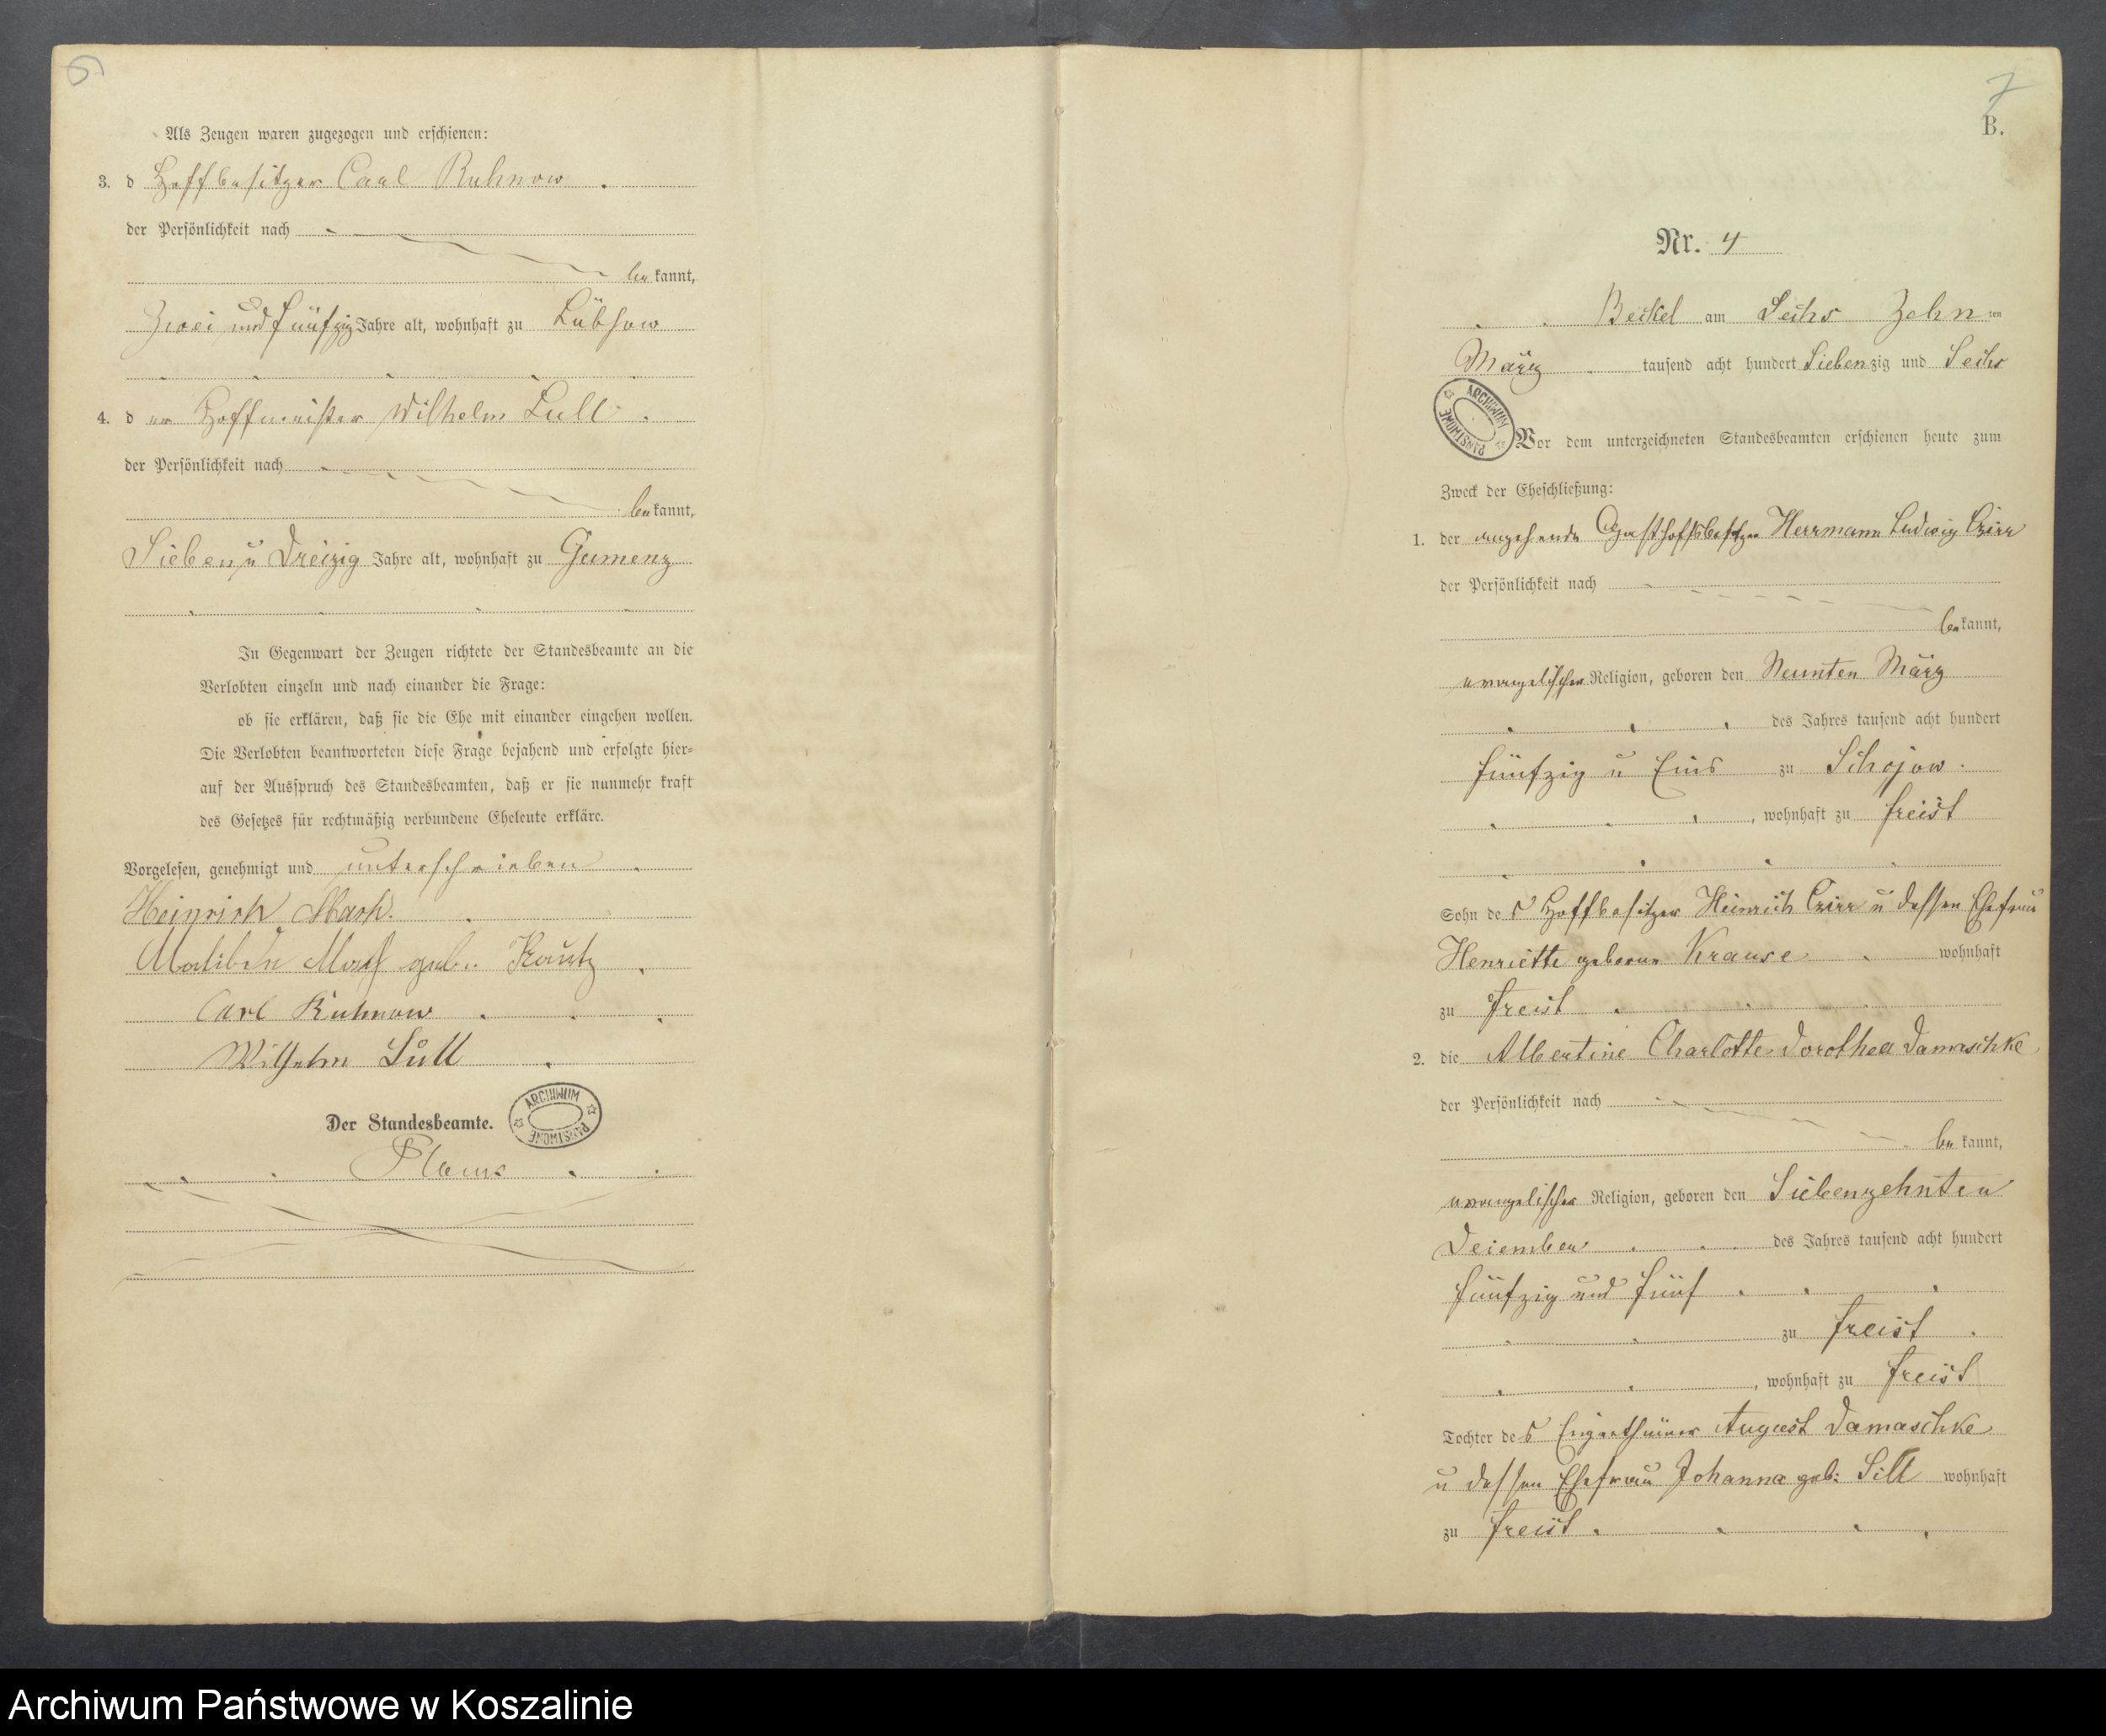 6
Als Zeugen waren zugezogen und erschienen:
3. d Hoffbesitzer Carl Kuhnow
der Persönlichkeit nach
be kannt,
Zwei und fünfzig Jahre alt, wohnhaft zu Lübzow
4. d er Hoffmeister Wilhelm Lull
der Persönlichkeit nach
be kannt,
Sieben u Dreizig Jahre alt, wohnhaft zu Gumenz
In Gegenwart der Zeugen richtete der Standesbeamte an die
Verlobten einzeln und nach einander die Frage:
ob sie erklären, daß sie die Ehe mit einander eingehen wollen.
Die Verlobten beantworteten diese Frage bejahend und erfolgte hier=
auf der Ausspruch des Standesbeamten, daß er sie nunmehr kraft
des Gesetzes für rechtmäßig verbundene Eheleute erkläre.
Vorgelesen, genehmigt und unterschrieben
Heinrich
geb. Kautz
Carl Kuhnow
Wilhelm Lull
Der Standesbeamte.
ARCHIWUM PAŃSTWOWE
7
B.
Nr. 4
Beckel am Sechs Zehn ten
März tausend acht hundert Siebenzig und Sechs
ARCHIWUM PAŃSTWOWE
Vor dem unterzeichneten Standesbeamten erschienen heute zum
Zweck der Eheschließung:
1. der angehende Gasthoffsbesitzer Herrmann Ludwig Czirr
der Persönlichkeit nach
be kannt,
evangelischer Religion, geboren den Neunten März
des Jahres tausend acht hundert
fünfzig u Eins zu Schojow
, wohnhaft zu Freist
Sohn des Hoffbesitzer Heinrich Czirr u dessen Ehefrau
Henriette geborne Krause wohnhaft
zu Freist
2. die Albertine Charlotte Dorothea Damaschke
der Persönlichkeit nach
be kannt,
evangelischer Religion, geboren den Siebenzehnten
Decemben des Jahres tausend acht hundert
fünfzig und fünf
zu Freist
, wohnhaft zu Freist
Tochter des Eigenthümer August Damaschke
u dessen Ehefrau Johanna geb: Sill wohnhaft
zu Freist
Archiwum Państwowe w Koszalinie